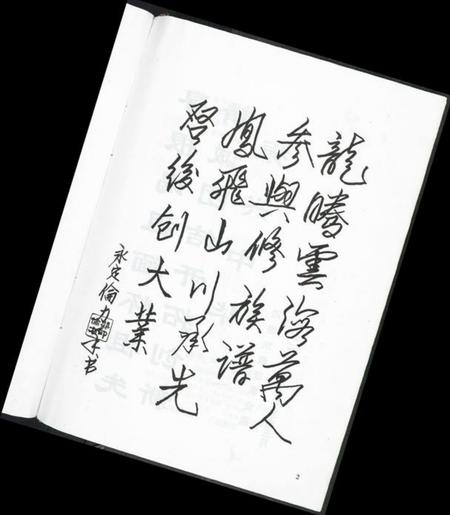 龍騰雲萬人
参與修族譜
鳳飛山川承先
啓後創大業
永定倫力书
2